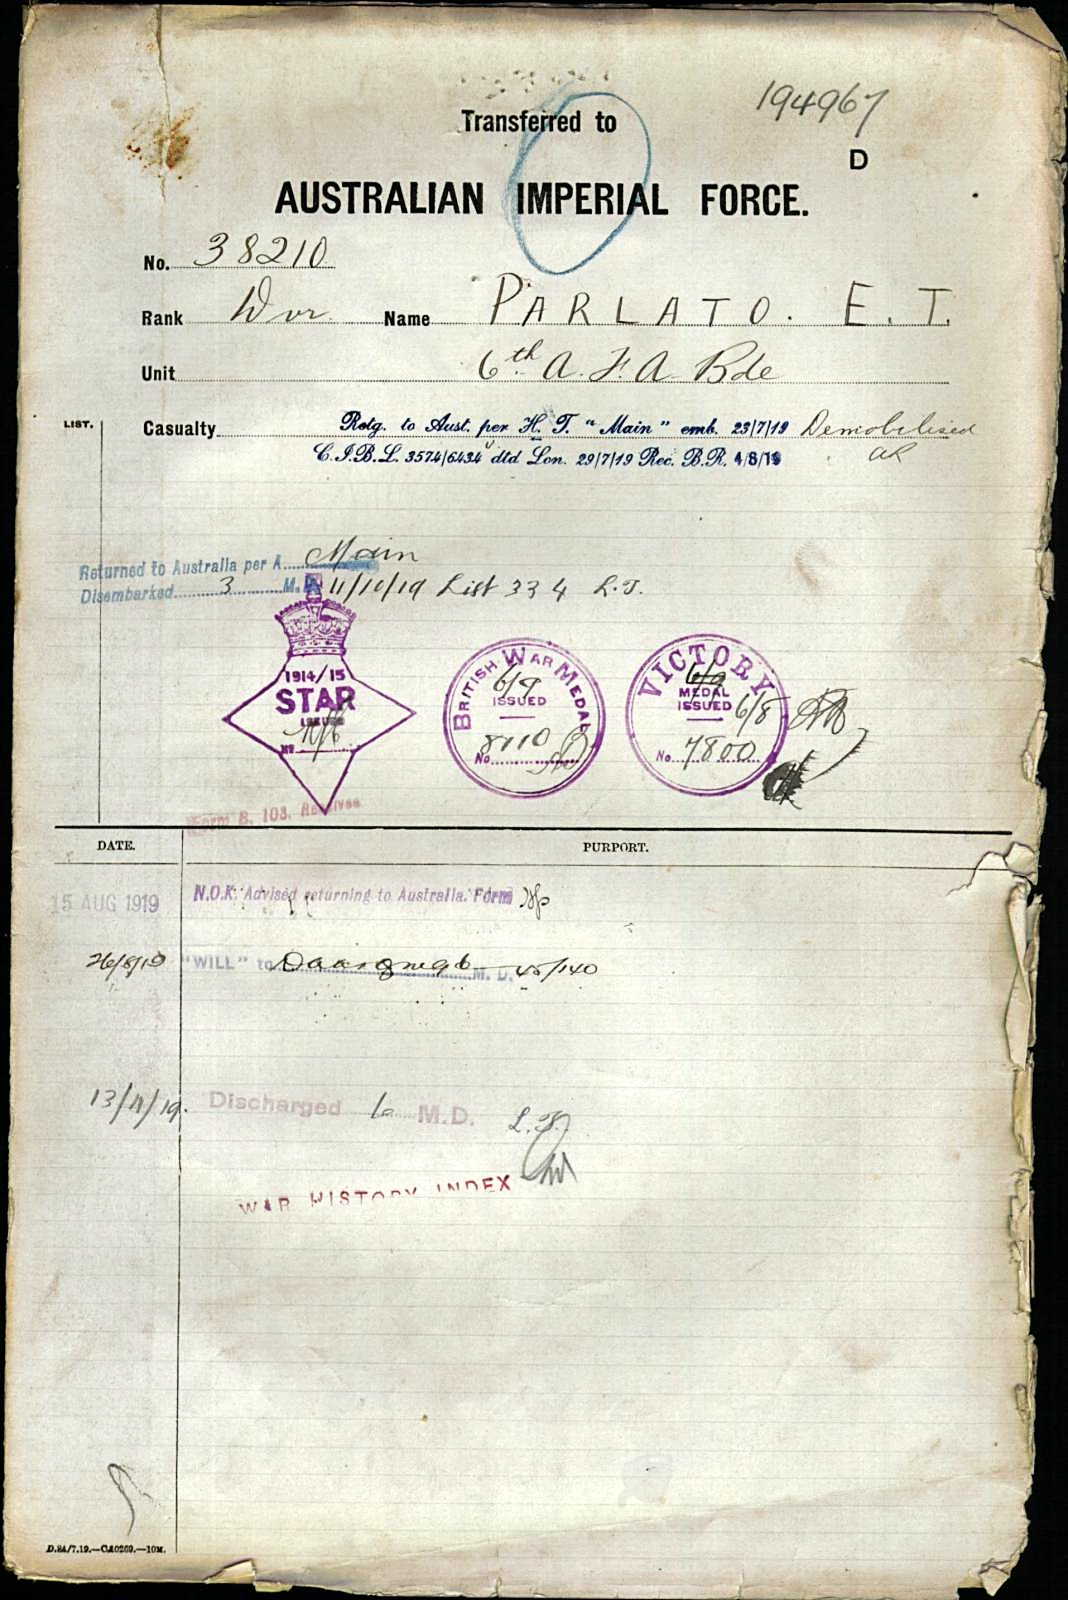 Transferred to
194967
D
AUSTRALIAN IMPERIAL FORCE.
No. 38210
Rank Dvr Name PARLATO. E. T.
Unit 6th A. F. A Bde
LIST.
Casualty Retg. to Aust. per H. T. "Main" emb. 23/7/19 Demobilised
C.I.B.L. 3574/6434 dtd Lon. 29/7/19 Rec. B.R. 4/8/19
Returned to Australia per A Main
Disembarked 3 M.D. 11/10/19 List 334 L.T.
1914/15
STAR
ISSUED
No
BRITISH WAR MEDAL
6/9
ISSUED
No 8110
VICTORY
6/9
MEDAL
ISSUED 6/8
No 7800
Form B. 103. Receives
DATE. PURPORT.
15 AUG 1919 N.O.K. Advised returning to Australia. Form
26/8/19 "WILL" to M. D. 45/140
13/11/19. Discharged M.D. L.T.
WAR HISTORY INDEX
D.84/7.19.—C.10269.—10M.